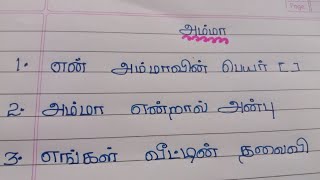 அம்மா
1. என் அம்மாவின் பெயர் [ ]
2. அம்மா என்றால் அன்பு
3. எங்கள் வீட்டின் தலைவி